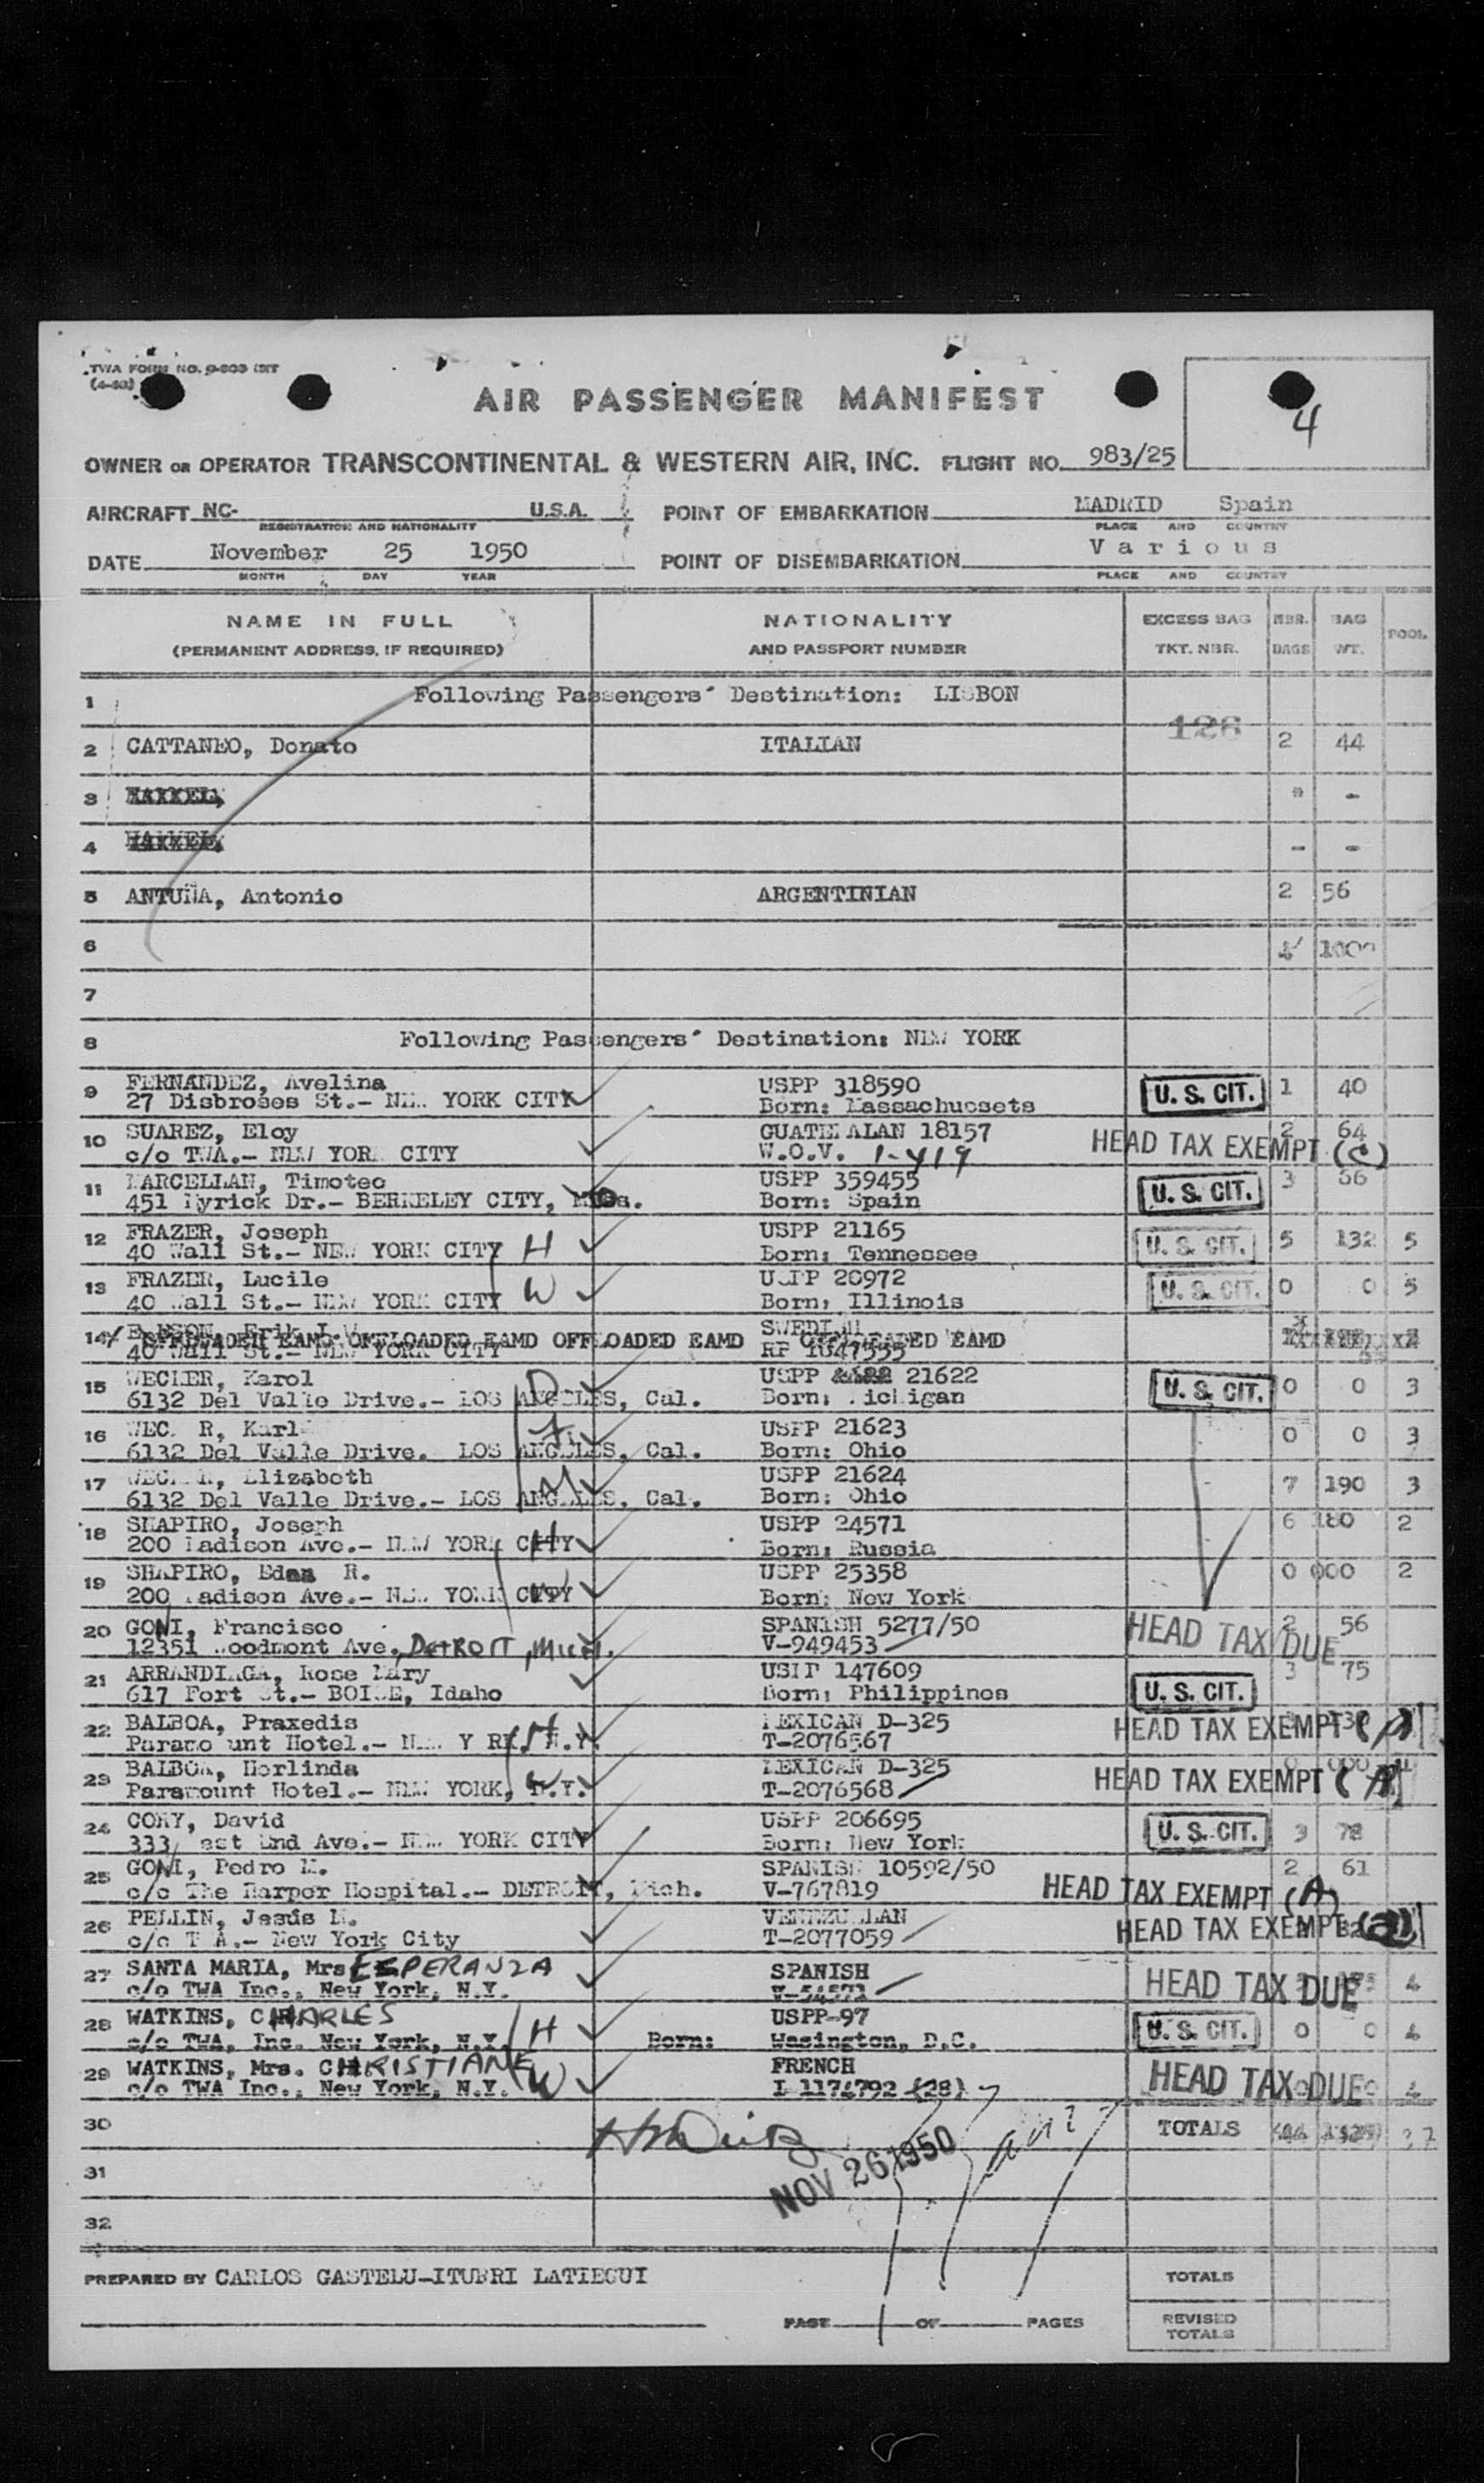 TWA FORM NO.
4
AIR PASSENGER MANIFEST
OWNER OR OPERATOR TRANSCONTINENTAL & WESTERN AIR, INC. FLIGHT NO. 983/25
AIRCRAFT NC- U.S.A. POINT OF EMBARKATION MADRID Spain
REGISTRATION AND NATIONALITY PLACE AND COUNTRY
DATE November 25 1950 POINT OF DISEMBARKATION Various
MONTH DAY YEAR PLACE AND COUNTRY
NAME IN FULL NATIONALITY EXCESS BAG NBR. BAG POOL
(PERMANENT ADDRESS, IF REQUIRED) AND PASSPORT NUMBER TKT. NBR. BAGS WT.
1 Following Passengers' Destination: LISBON
126
2 CATTANEO, Donato ITALIAN 2 44
3 -
4 - -
5 ANTUÑA, Antonio ARGENTINIAN 2 56
6
7
8 Following Passengers' Destination: NEW YORK
9 FERNANDEZ, Avelina USPP 318590 U. S. CIT. 1 40
27 Disbroses St.- NEW YORK CITY Born: Massachussets
10 SUAREZ, Eloy GUATEMALAN 18157 HEAD TAX EXEMPT (C) 2 64
c/o TWA.- NEW YORK CITY W.O.V. 1-419
11 MARCELLAN, Timoteo USPP 359455 U. S. CIT. 3 56
451 Lyrick Dr.- BERKELEY CITY, Born: Spain
12 FRAZER, Joseph USPP 21165 U. S. CIT. 5 132 5
40 Wall St.- NEW YORK CITY H Born: Tennessee
13 FRAZER, Lucile USPP 20972 U. S. CIT. 0 0 5
40 Wall St.- NEW YORK CITY W Born: Illinois
14 OFFLOADED EAMD OFFLOADED EAMD OFFLOADED EAMD OFFLOADED EAMD
40 Wall St.- NEW YORK CITY
15 WECLER, Karol USPP 21622 U. S. CIT. 0 0 3
6132 Del Valle Drive.- LOS ANGELES, Cal. D Born: Michigan
16 WECLER, Karl USPP 21623 0 0 3
6132 Del Valle Drive. LOS ANGELES, Cal. F Born: Ohio
17 WECLER, Elizabeth USPP 21624 7 190 3
6132 Del Valle Drive.- LOS ANGELES, Cal. M Born: Ohio
18 SHAPIRO, Joseph USPP 24571 6 180 2
200 Madison Ave.- NEW YORK CITY H Born: Russia
19 SHAPIRO, R. USPP 25358 0 000 2
200 Madison Ave.- NEW YORK CITY W Born: New York
20 GONI, Francisco SPANISH 5277/50 HEAD TAX DUE 2 56
12351 Woodmont Ave, DETROIT, MICH. V-949453
21 ARRANDIAGA, Rose Mary USPP 147609 U. S. CIT. 3 75
617 Fort St.- BOISE, Idaho Born: Philippines
22 BALBOA, Praxedis MEXICAN D-325 HEAD TAX EXEMPT
Paramo unt Hotel.- NEW YORK, N.Y. H T-2076567
23 BALBOA, Herlinda MEXICAN D-325 HEAD TAX EXEMPT (A)
Paramount Hotel.- NEW YORK, N.Y. W T-2076568
24 CORY, David USPP 206695 U. S. CIT. 3 78
333 West End Ave.- NEW YORK CITY Born: New York
25 GONI, Pedro M. SPANISH 10592/50 HEAD TAX EXEMPT (A) 2 61
c/o The Harper Hospital.- DETROIT, Mich. V-767819
26 PELLIN, Jesús M. VENEZUELAN HEAD TAX EXEMPT
c/o TWA.- New York City T-2077059
27 SANTA MARIA, Mrs ESPERANZA SPANISH HEAD TAX DUE 4
c/o TWA Inc., New York, N.Y.
28 WATKINS, CHARLES USPP-97 U. S. CIT. 0 0 4
c/o TWA, Inc. New York, N.Y. H Born: Wasington, D.C.
29 WATKINS, Mrs. CHRISTIANE FRENCH HEAD TAX DUE 4
c/o TWA Inc., New York, N.Y. W (28)
30 TOTALS
NOV 26 1950
31
32
PREPARED BY CARLOS GASTELU-ITURRI LATIEGUI TOTALS
PAGE 1 OF PAGES REVISED
TOTALS